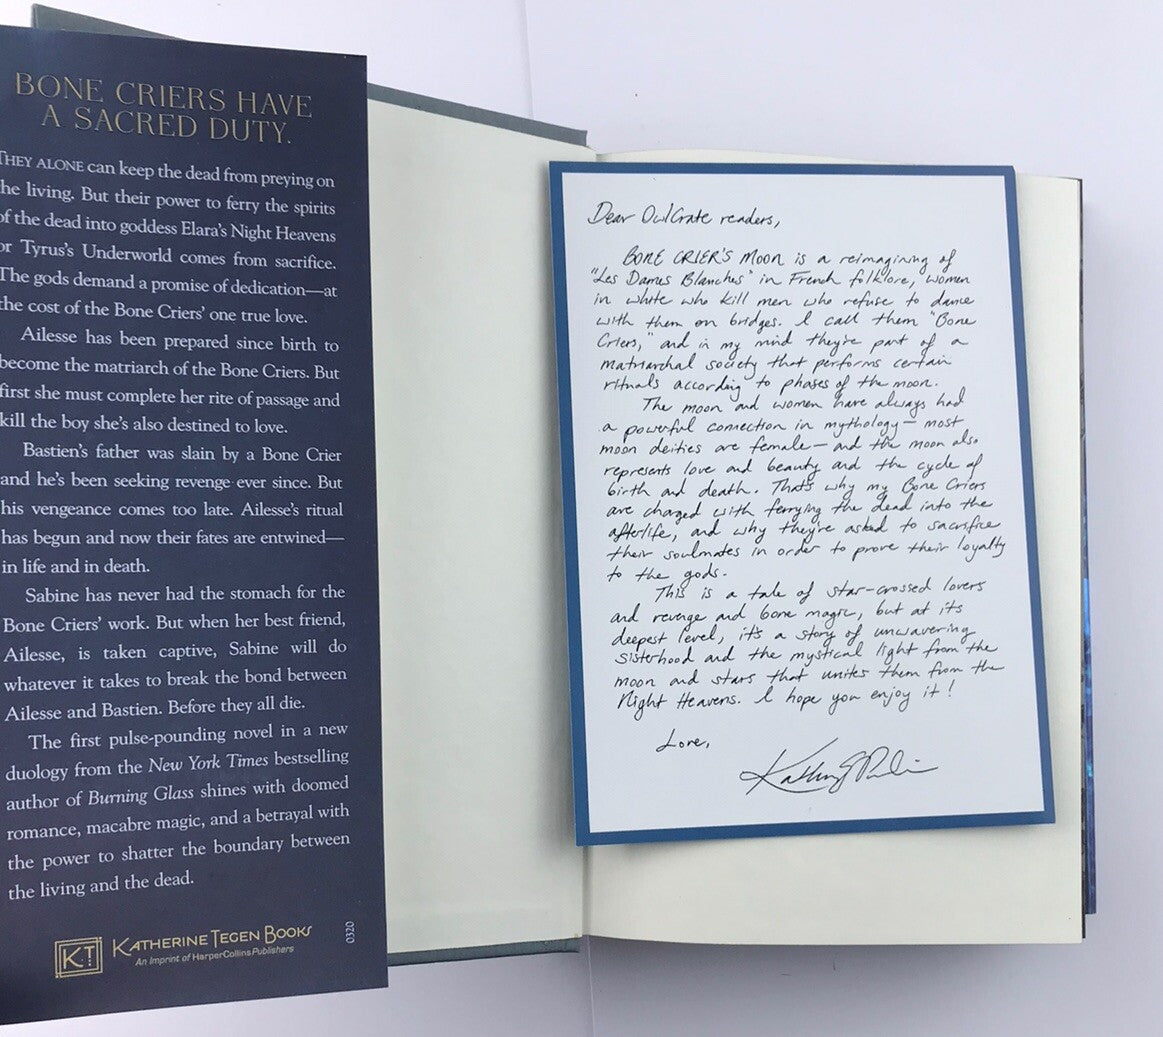 BONE CRIERS HAVE
A SACRED DUTY.
THEY ALONE can keep the dead from preying on
the living. But their power to ferry the spirits
of the dead into goddess Elara's Night Heavens
or Tyrus's Underworld comes from sacrifice.
The gods demand a promise of dedication—at
the cost of the Bone Criers' one true love.
Ailesse has been prepared since birth to
become the matriarch of the Bone Criers. But
first she must complete her rite of passage and
kill the boy she's also destined to love.
Bastien's father was slain by a Bone Crier
and he's been seeking revenge ever since. But
his vengeance comes too late. Ailesse's ritual
has begun and now their fates are entwined—
in life and in death.
Sabine has never had the stomach for the
Bone Criers' work. But when her best friend,
Ailesse, is taken captive, Sabine will do
whatever it takes to break the bond between
Ailesse and Bastien. Before they all die.
The first pulse-pounding novel in a new
duology from the New York Times bestselling
author of Burning Glass shines with doomed
romance, macabre magic, and a betrayal with
the power to shatter the boundary between
the living and the dead.
KT KATHERINE TEGEN BOOKS
An Imprint of HarperCollinsPublishers
0320
Dear OwlCrate readers,
BONE CRIER'S MOON is a reimagining of
"Les Dames Blanches" in French folklore, women
in white who kill men who refuse to dance
with them on bridges. I call them "Bone
Criers," and in my mind they're part of a
matriarchal society that performs certain
rituals according to phases of the moon.
The moon and women have always had
a powerful connection in mythology—most
moon deities are female—and the moon also
represents love and beauty and the cycle of
birth and death. That's why my Bone Criers
are charged with ferrying the dead into the
afterlife, and why they're asked to sacrifice
their soulmates in order to prove their loyalty
to the gods.
This is a tale of star-crossed lovers
and revenge and bone magic, but at its
deepest level, it's a story of unwavering
sisterhood and the mystical light from the
moon and stars that unites them from the
Night Heavens. I hope you enjoy it!
Love,